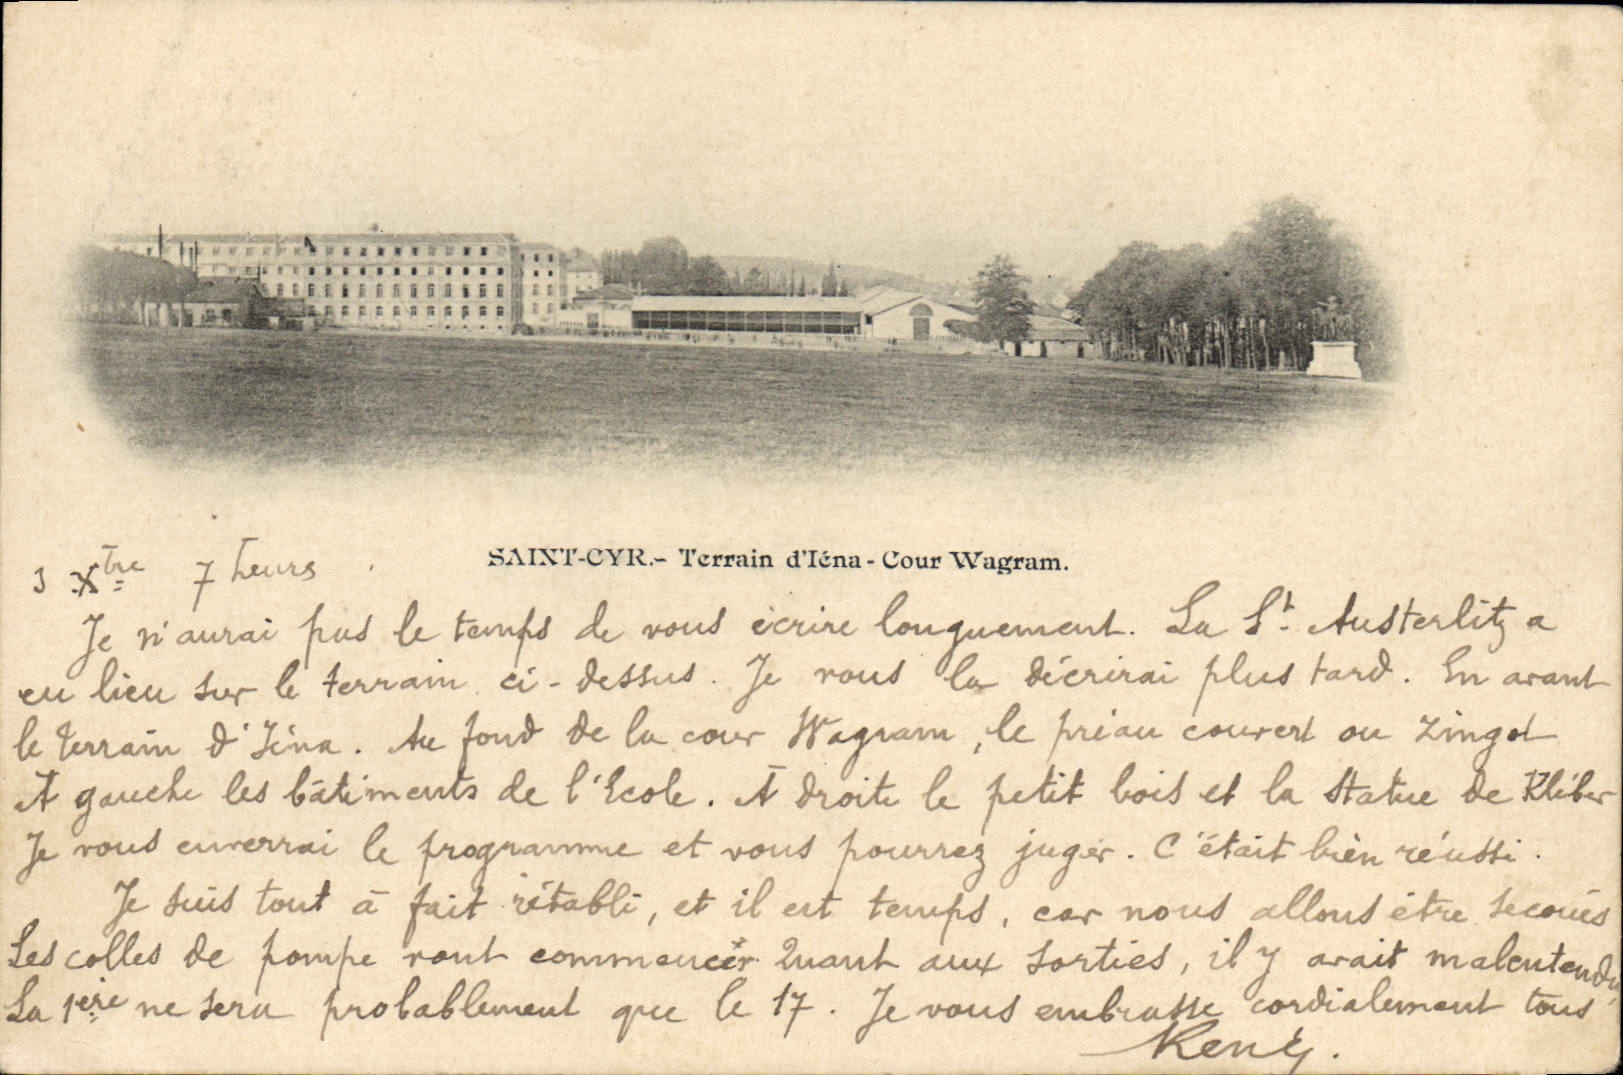 SAINT-CYR.- Terrain d'Iéna - Cour Wagram.
3 Xbre 7 heures
Je n'aurai pas le temps de vous écrire longuement. La St. Austerlitz a
eu lieu sur le terrain ci-dessus. Je vous la décrirai plus tard. En avant
le terrain d'Iéna. Au fond de la cour Wagram, le préau couvert ou Zingot
A gauche les bâtiments de l'Ecole. A droite le petit bois et la statue de Kléber
Je vous enverrai le programme et vous pourrez juger. C'était bien réussi.
Je suis tout à fait rétabli, et il est temps, car nous allons être secoués
Les colles de pompe vont commencer Quant aux sorties, il y avait malentendu,
La 1ère ne sera probablement que le 17. Je vous embrasse cordialement tous
René.